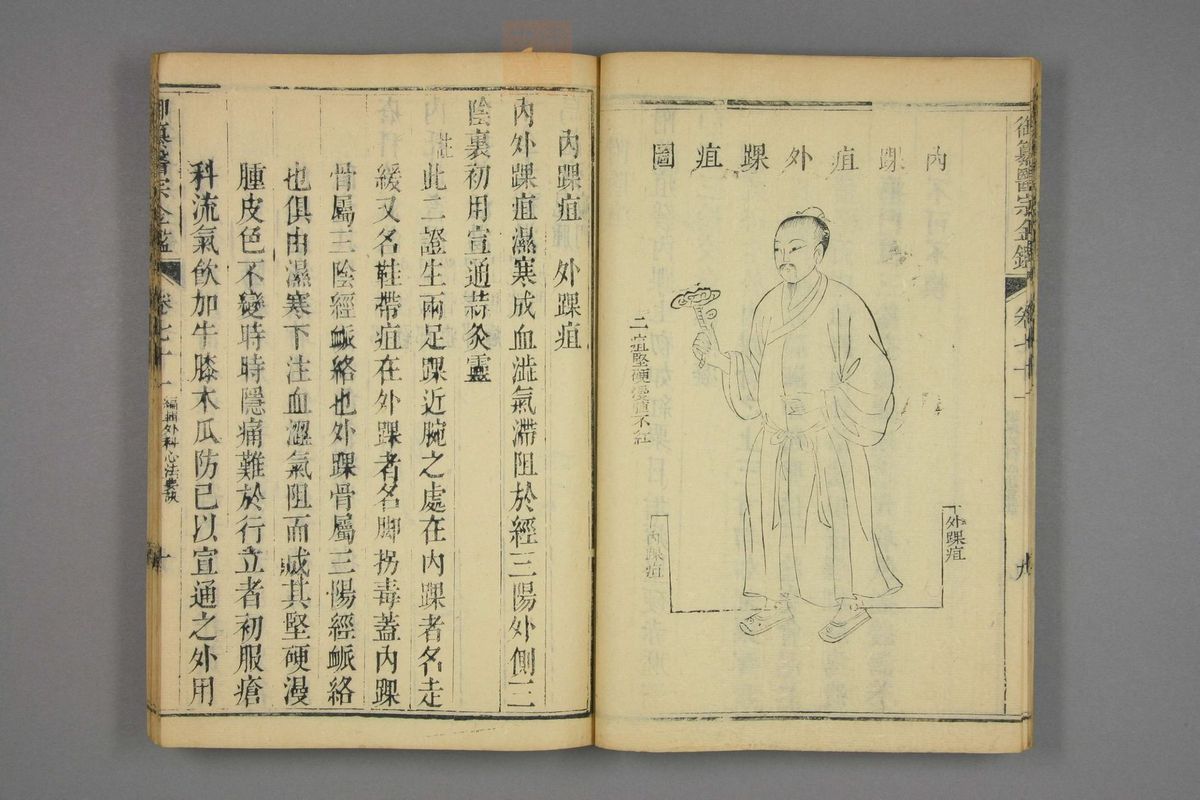 御纂醫宗金鑑 卷七十一 九
內踝疽外踝疽圖
外踝疽
內踝疽
二疽堅硬漫腫不紅
內踝疽 外踝疽
內外踝疽濕寒成血澁氣滯阻於經三陽外側三
陰裏初用宣通蒜灸靈
註此二證生兩足踝近腕之處在內踝者名走
緩又名鞋帶疽在外踝者名脚拐毒蓋內踝
骨屬三陰經脈絡也外踝骨屬三陽經脈絡
也俱由濕寒下注血澀氣阻而成其堅硬漫
腫皮色不變時時隱痛難於行立者初服瘡
科流氣飲加牛膝木瓜防已以宣通之外用
御纂醫宗金鑑 卷七十一 編輯外科心法要訣 十